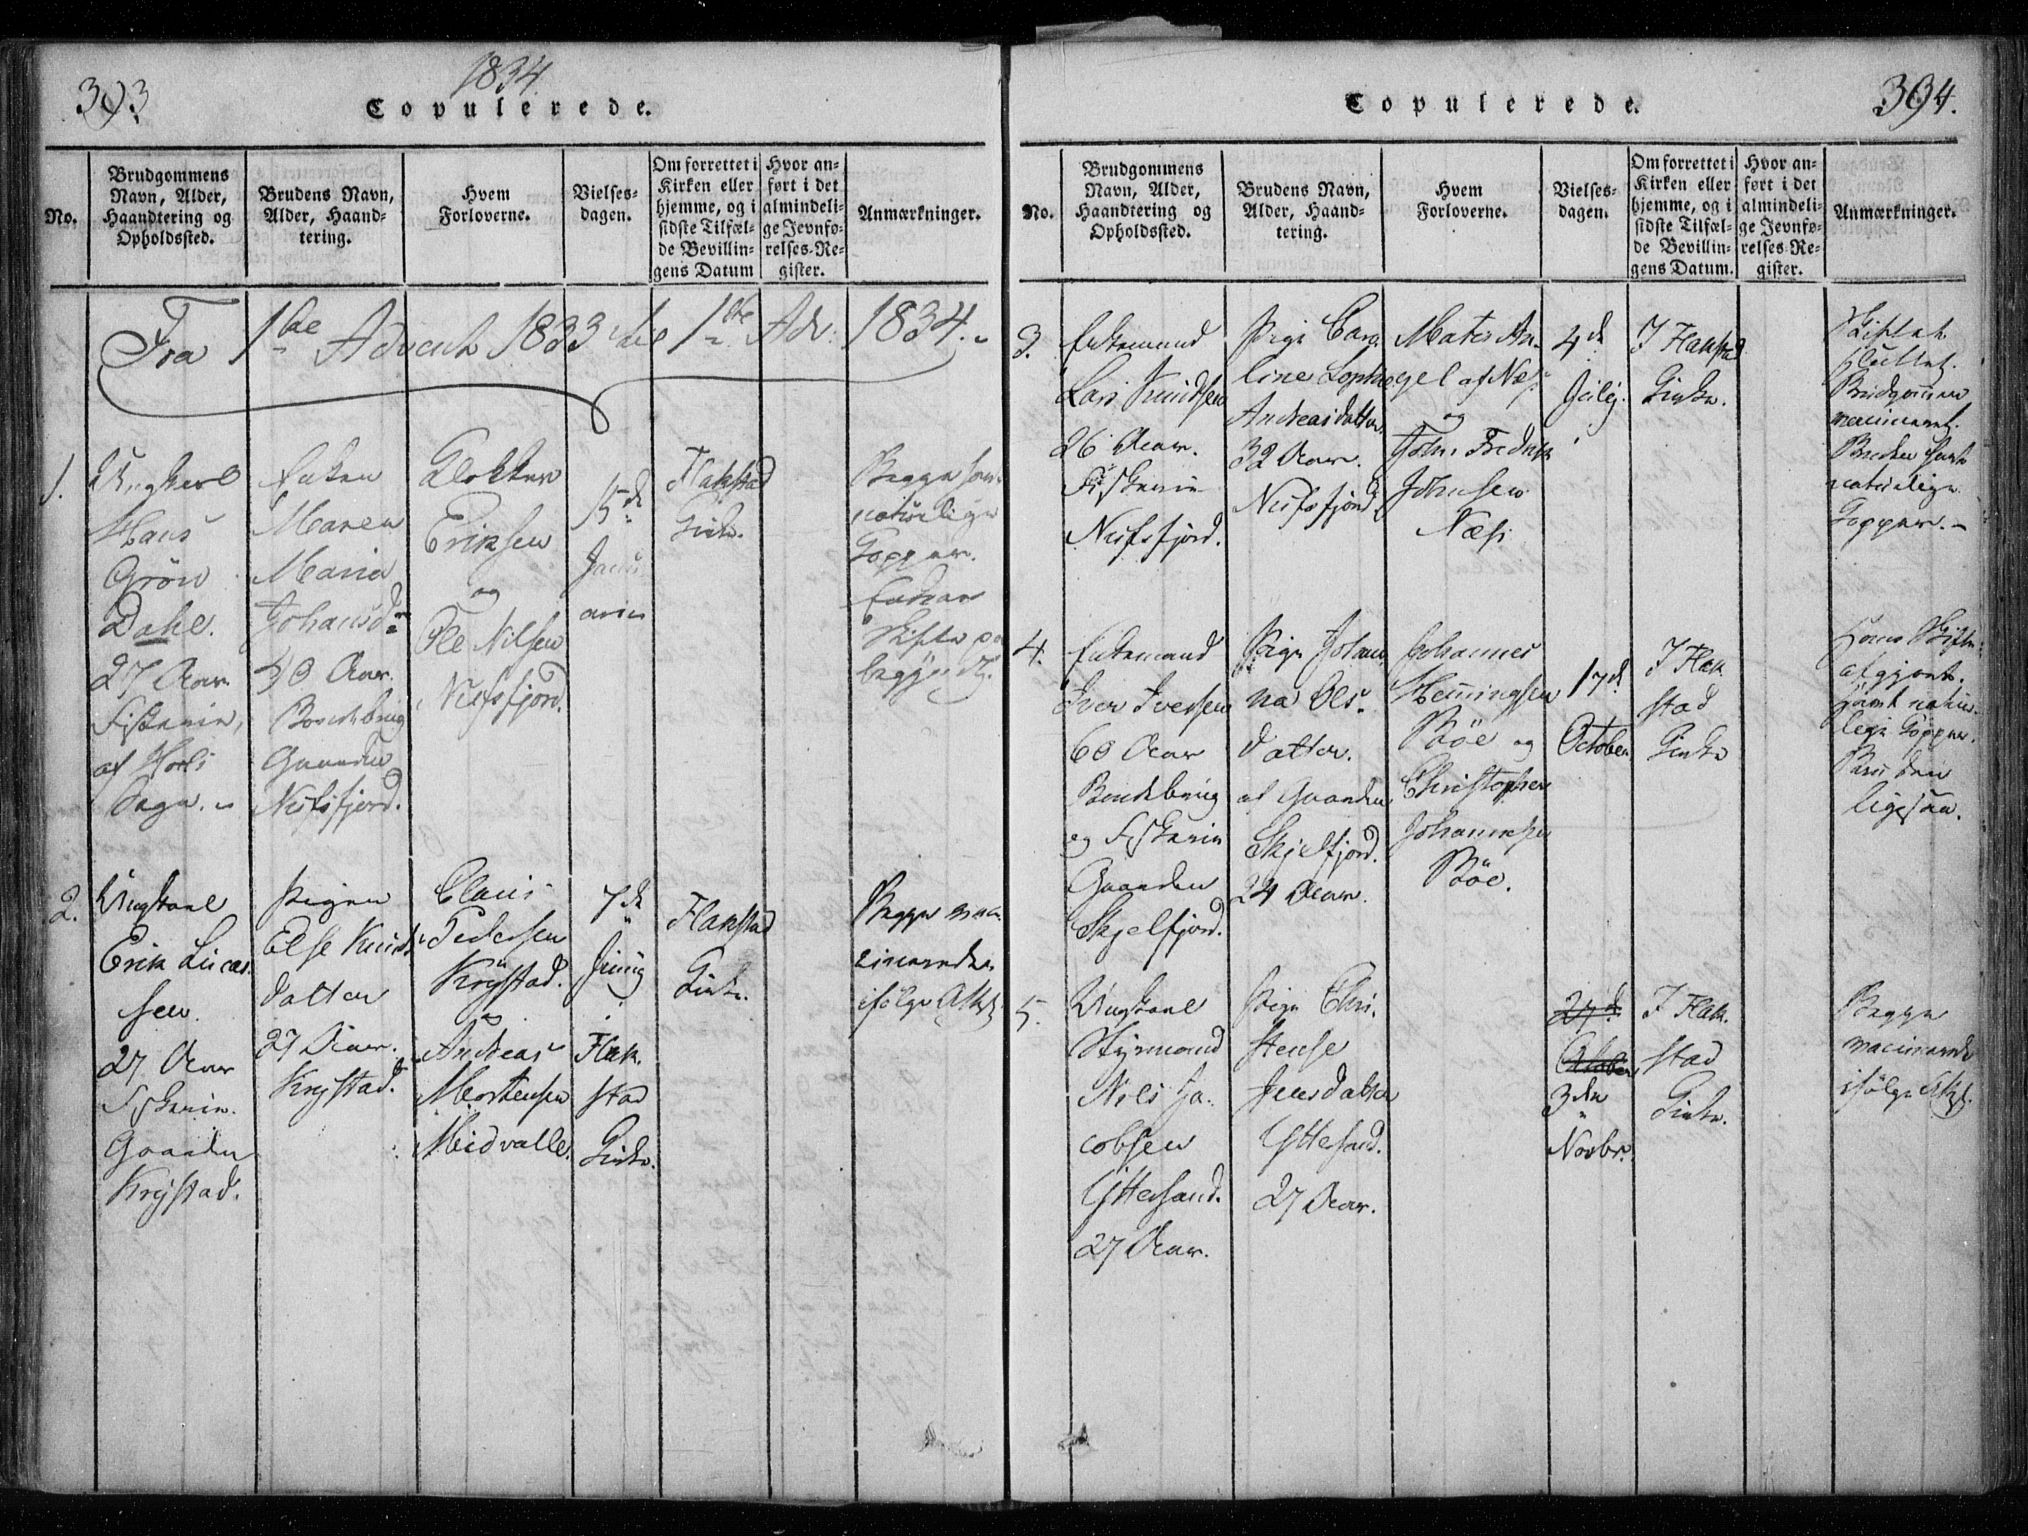 393
1834.
Copulerede.
No.
Brudgommens
Navn, Alder,
Haandtering og
Opholdssted.
Brudens Navn,
Alder, Haand-
tering.
Hvem
Forloverne.
Vielses-
dagen.
Om forrettet i
Kirken eller
hjemme, og i
sidste Tilfæl-
de Bevillin-
gens Datum
Hvor an-
ført i det
almindeli-
ge Jevnfø-
relses-Re-
gister.
Anmærkninger.
Fra 1ste Advent 1833 til 1ste Adv. 1834.
1.
Ungkarl
Hans
Grön
Dahl.
27 Aar
Fiskerie,
af Hols
Sogn.
Enken
Maren
Maria
Johansd.
40 Aar.
Bondebrug
Gaarden
Nusfjord.
Klokker
Eriksen
og
Ole Nilsen
Nusfjord.
15de
Janu
arii
Flakstad
Kirke.
Begge have
naturlige
Kopper.
Enkens
Skifte paa
begyndt.
2.
Ungkarl
Erik Lucas
sen.
27 Aar
Fiskerie.
Gaarden
Krystad.
Pigen
Else Knuds
datter
27 Aar.
Krystad.
Claus
Pedersen
Krystad.
og
Andreas
Mortensen
Midvalle.
7de
Junij
Flak
stad
Kirke.
Flakstad
Kirke.
Begge vac
cinerede
ifølge Attest
394.
Copulerede.
No.
Brudgommens
Navn, Alder,
Haandtering og
Opholdssted.
Brudens Navn,
Alder, Haand-
tering.
Hvem
Forloverne.
Vielses-
dagen.
Om forrettet i
Kirken eller
hjemme, og i
sidste Tilfæl-
de Bevillin-
gens Datum.
Hvor an-
ført i det
almindeli-
ge Jevnfø-
relses-Re-
gister.
Anmærkninger.
3.
Enkemand
Lars Knudsen
26 Aar.
Fiskerie
Nusfjord.
Pige Caro
line Sophie
Andreasdatter
32 Aar.
Nusfjord
Mates An
gel af Næs
og
John Fredrik
Johnsen
Næs
4de
Julij.
I Flakstad
Kirke.
Skiftet
sluttet.
Brudgommen
vaccineret.
Bruden havt
naturlige
Kopper.
4.
Enkemand
Iver Iversen
60 Aar
Bondebrug
og Fiskerie
Gaarden
Skjelfjord.
Pige Johan
na Ols
datter.
af Gaarden
Skjelfjord.
24 Aar.
Johannes
Hemingsen
Böe og
Christopher
Johannesen
Böe.
17de
October
I Flak
stad
Kirke
Hans Skifte
afgjort.
havt natur
lige Kopper.
Bruden
ligesaa.
5.
Ungkarl
Styrmand
Nils Ja
cobsen
Yttersand.
27 Aar.
Pige Chri
stense
Jensdatter
Yttersand.
27 Aar.
27de
October
3die
Novbr.
I Flak
stad
Kirke.
Begge
vaccinerede
ifølge Attest.